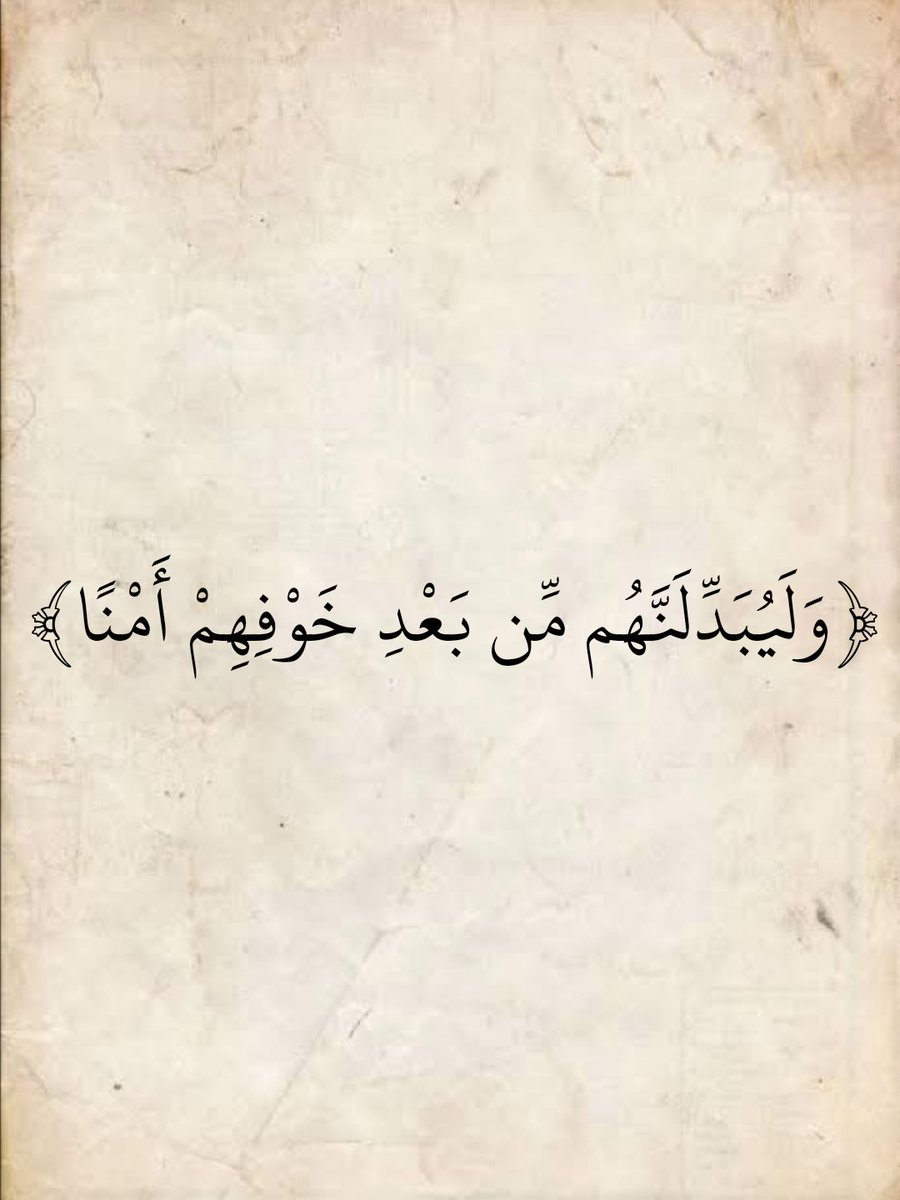 ﴿وَلَيُبَدِّلَنَّهُم مِّن بَعْدِ خَوْفِهِمْ أَمْنًا﴾